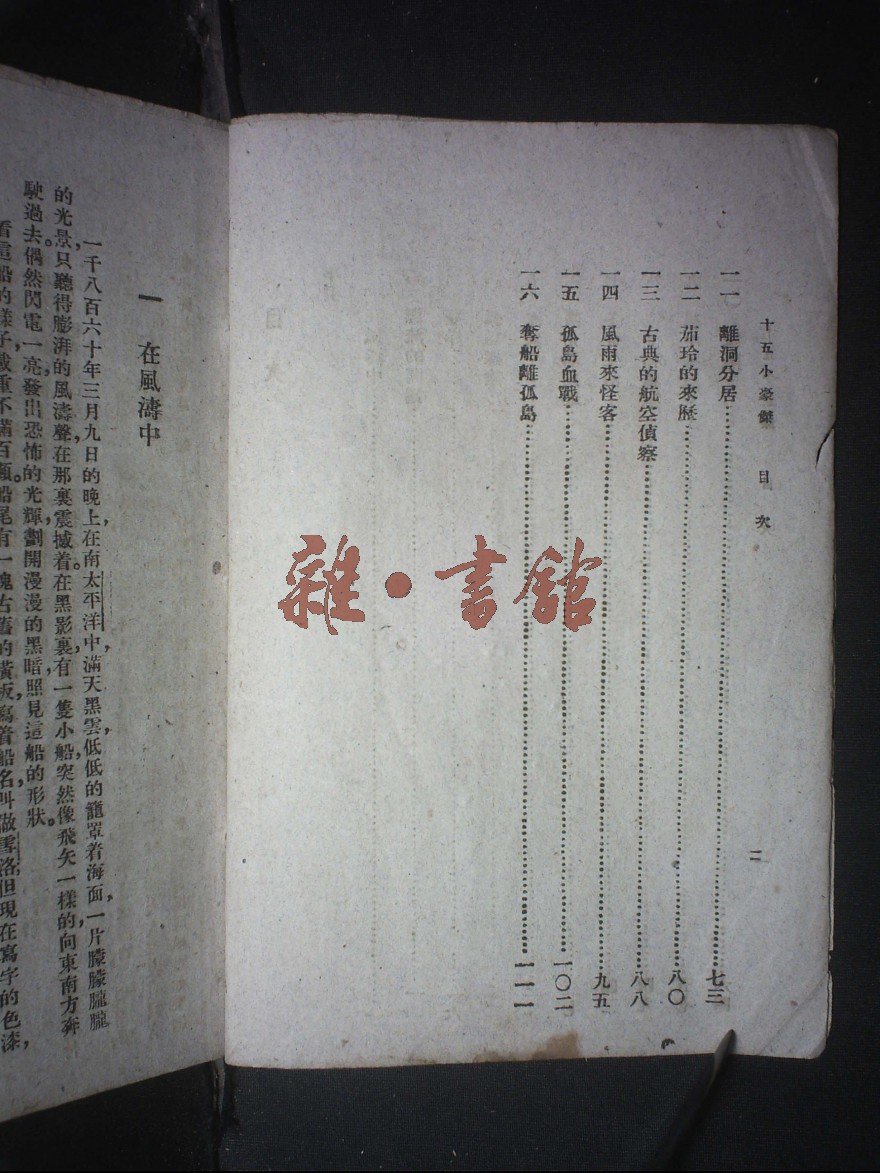 十五小豪傑 目次 二
一一 離洞分居 七三
一二 茄玲的來歷 八〇
一三 古典的航空偵察 八八
一四 風雨來怪客 九五
一五 孤島血戰 一〇二
一六 奪船離孤島 一一一
雜·書館
一 在風濤中
一千八百六十年三月九日的晚上,在南太平洋中,滿天黑雲,低低的籠罩着海面,一片朦朦朧朧
的光景,只聽得膨湃的風濤聲在那裏震撼着。在黑影裏,有一隻小船,突然像飛矢一樣的向東南方奔
駛過去。偶然閃電一亮,發出恐怖的光輝,劃開漫漫的黑暗,照見這船的形狀。
看這船的樣子,載重不滿百頓。船尾有一塊古舊的橫板,寫着船名叫做雪洛,但現在寫字的色漆,